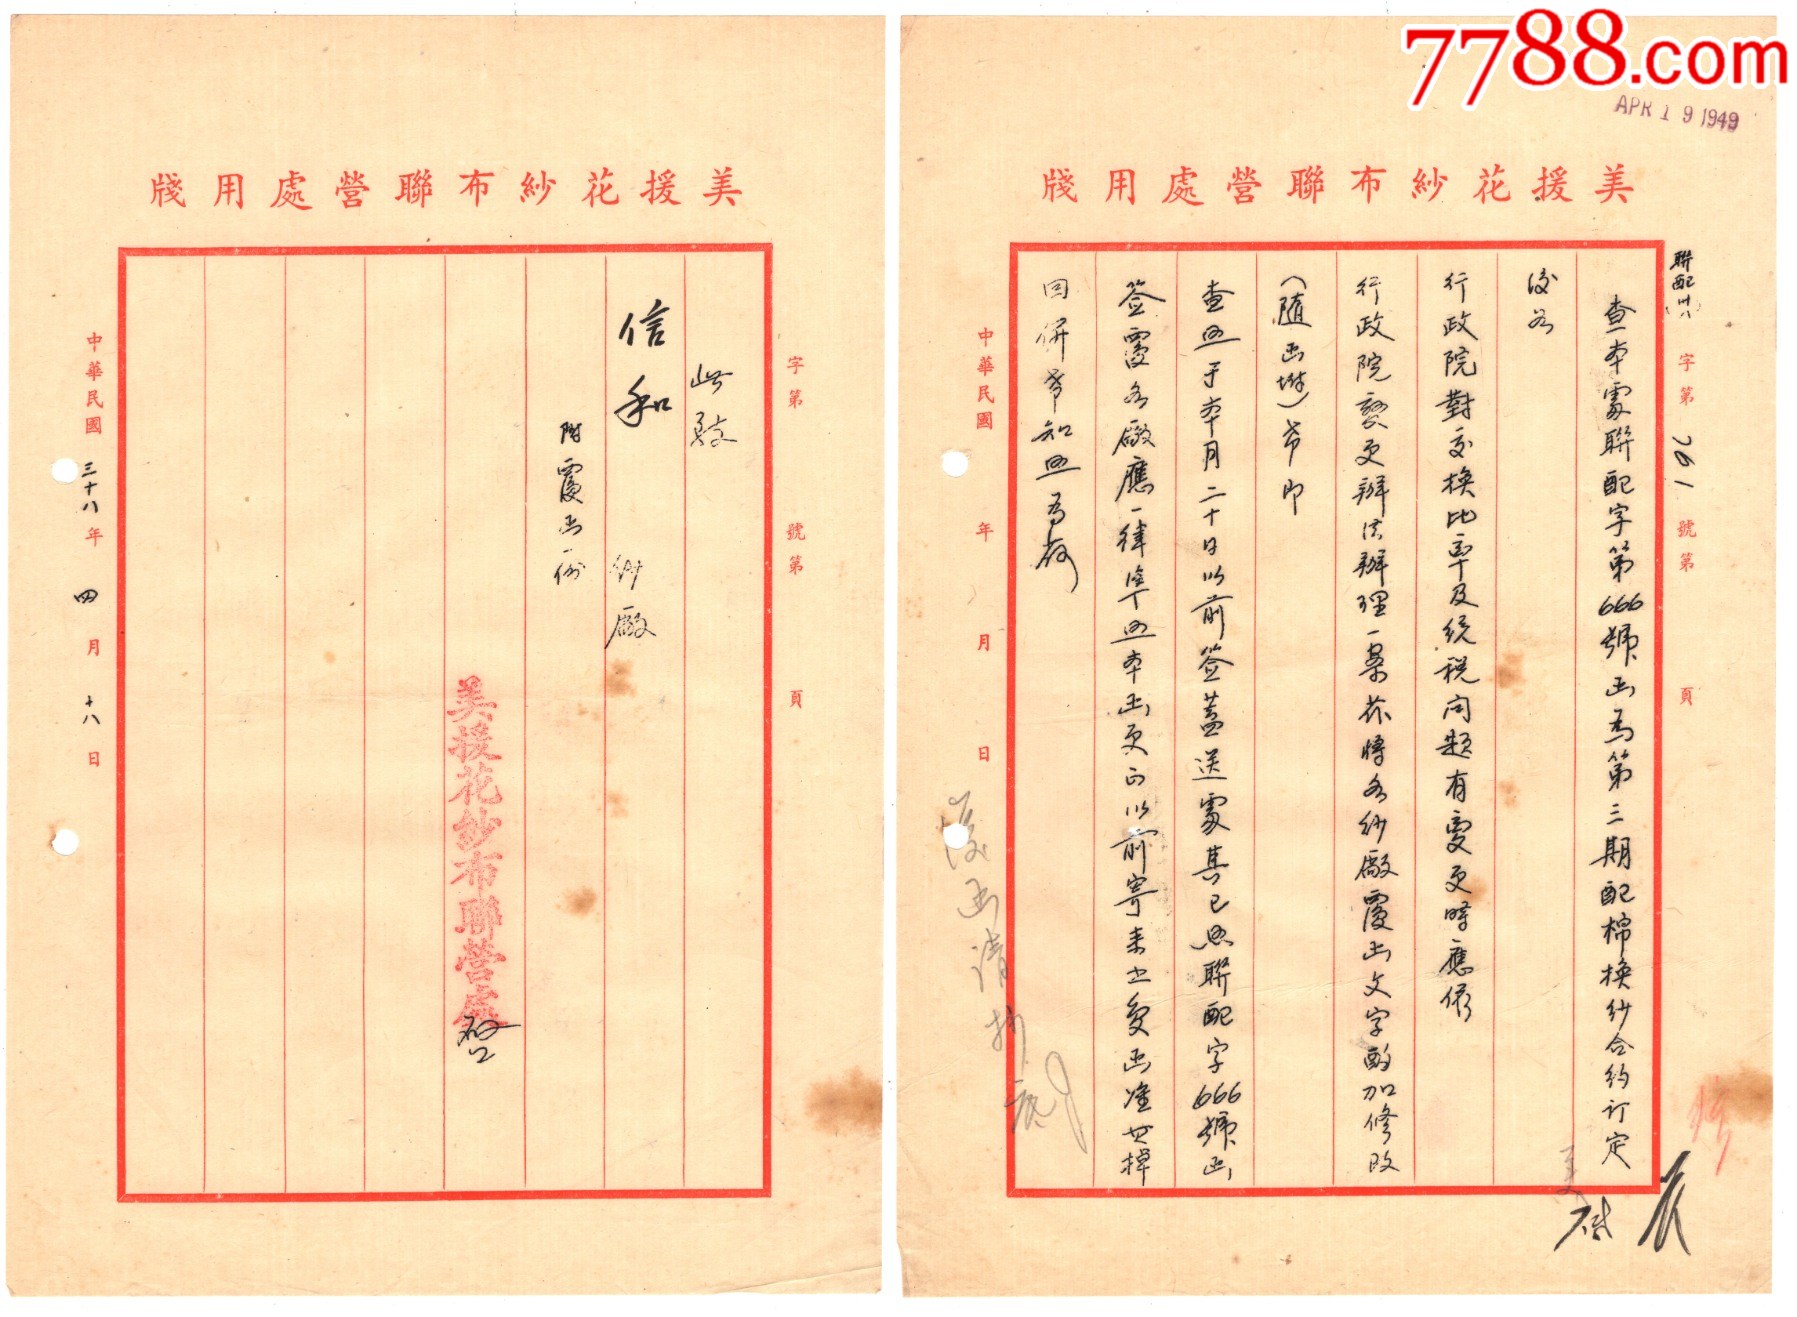 7788.com
APR 19 1949
美援花紗布聯營處用牋
聯配 字第 761 號第 頁
查本處聯配字第666號函為第三期配棉換紗合約訂定
後如
行政院對交換比率及統稅問題有變更時應依
行政院變更辦法辦理一案茲將各紗廠覆函文字酌加修改
(隨函附)希即
查照于本月二十日以前簽蓋送處其已照聯配字666號函
簽覆各廠應一律準照本函更正以前寄來之覆函准此掉
回併希知照為荷
中華民國 年 月 日
覆函請打
美援花紗布聯營處用牋
字第 號第 頁
此致
信和 紗廠
附覆函一份
美援花紗布聯營處啓
中華民國三十八年四月十八日